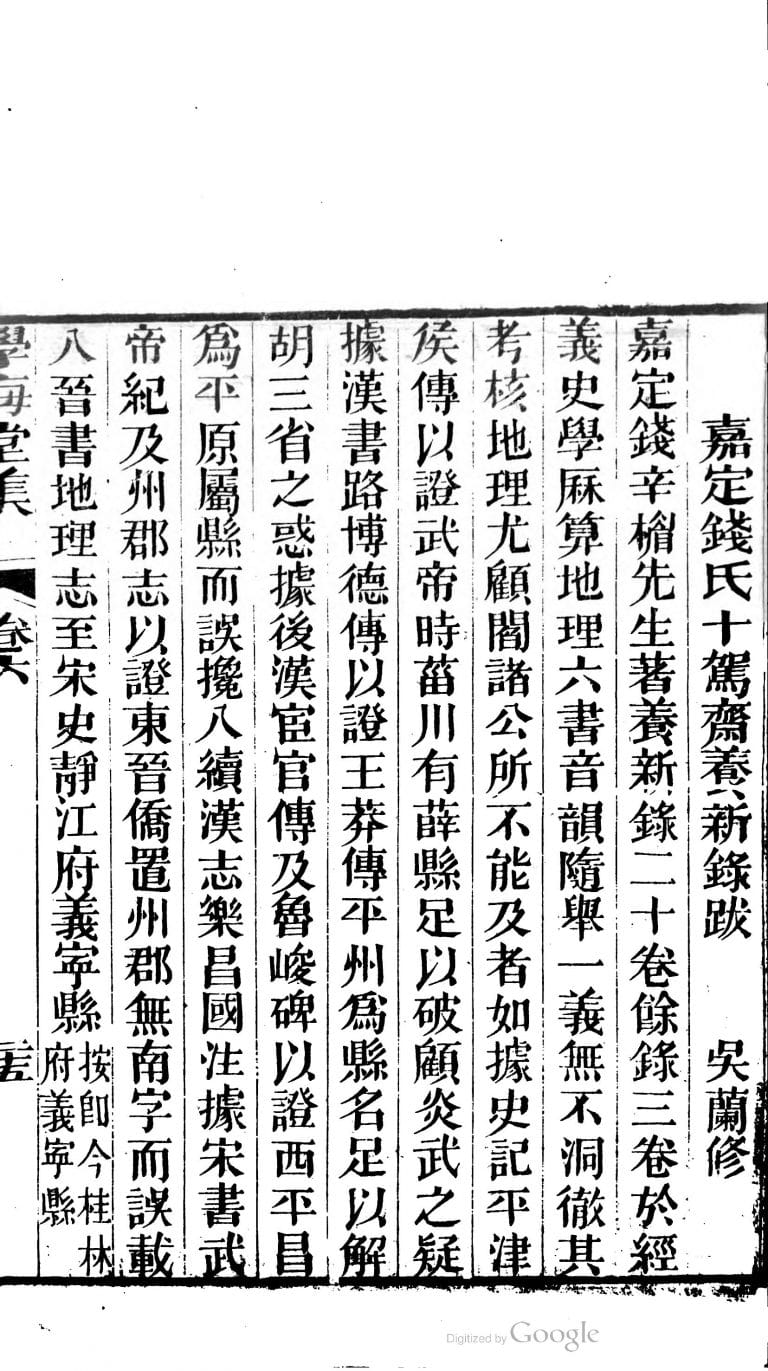 嘉定錢氏十駕齋養新錄跋　吳蘭修
嘉定錢辛楣先生著養新錄二十卷餘錄三卷於經
義史學厤算地理六書音韻隨舉一義無不洞徹其
考核地理尤顧閻諸公所不能及者如據史記平津
侯傳以證武帝時菑川有薛縣足以破顧炎武之疑
據漢書路博德傳以證王莽傳平州爲縣名足以解
胡三省之惑據後漢宦官傳及魯峻碑以證西平昌
爲平原屬縣而誤攙入續漢志樂昌國注據宋書武
帝紀及州郡志以證東晉僑置州郡無南字而誤載
入晉書地理志至宋史靜江府義寧縣按卽今桂林府義寧縣
學海堂集　卷六　二十五
Digitized by Google